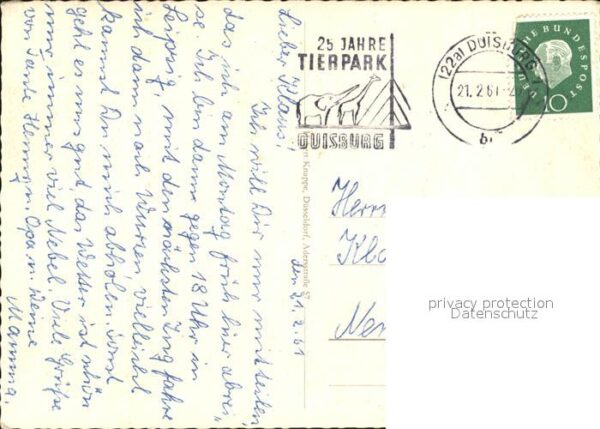 25 JAHRE
TIERPARK
DUISBURG
(22a) DUISBURG
21.2.61-2
bf
DEUTSCHE BUNDESPOST
10
Lieber Klaus!
Ich will Dir nur mitteilen,
das ich am Montag früh hier abrei,
se. Ich bin dann gegen 18 Uhr in
Leipzig, mit dem nächsten Zug fahre
ich dann nach Wurzen, vielleicht
kannst Du mich abholen. sonst
geht es uns gut das Wetter ist schön
nur immer viel Nebel. Viele Grüße
von Tante Hemm, Opa u. Deine
Mamma.
den 21.2.61
Knuppe, Düsseldorf, Adersstraße 57
Herrn
Kla
Ne
privacy protection
Datenschutz